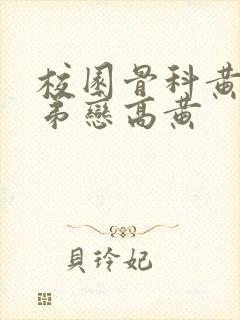 校園骨科黃
弟戀高黄
貝玲妃